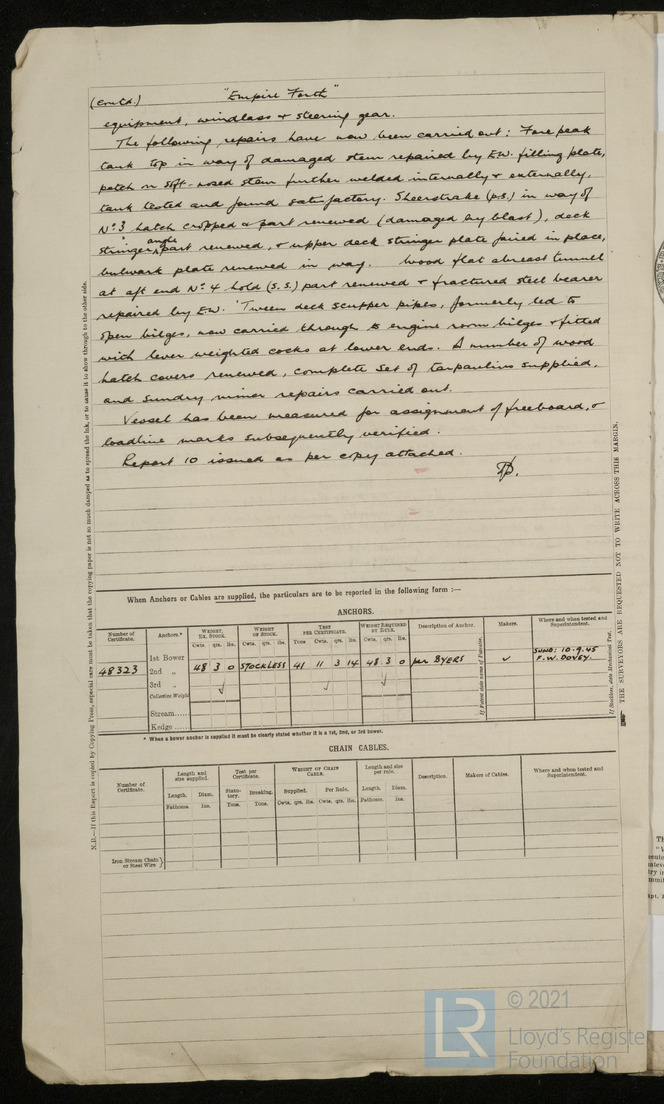 (Contd.) "Empire Forth"
equipment, windlass & steering gear.
The following repairs have now been carried out: Fore peak
tank top in way of damaged stem repaired by E.W. filling plate,
patch on soft-nosed stem further welded internally & externally,
tank tested and found satisfactory. Sheerstrake (p.s.) in way of
No 3 hatch cropped & part renewed (damaged by blast), deck
stringer angle part renewed, & upper deck stringer plate faired in place,
bulwark plate renewed in way. Wood flat abreast tunnel
at aft end No 4 hold (s.s.) part renewed & fractured steel bearer
repaired by E.W. 'Tween deck scupper pipes, formerly led to
open bilges, now carried through to engine room bilges & fitted
with lever weighted cocks at lower ends. A number of wood
hatch covers renewed, complete set of tarpaulins supplied,
and sundry minor repairs carried out.
Vessel has been measured for assignment of freeboard, &
loadline marks subsequently verified.
Report 10 issued as per copy attached.
N.B.—If this Report is copied by Copying Press, especial care must be taken that the copying paper is not so much damped as to spread the Ink, or to cause it to show through to the other side.
THE SURVEYORS ARE REQUESTED NOT TO WRITE ACROSS THIS MARGIN.
When Anchors or Cables are supplied, the particulars are to be reported in the following form :—
ANCHORS.
Number of Certificate. Anchors.* WEIGHT, EX. STOCK. WEIGHT OF STOCK. TEST PER CERTIFICATE. WEIGHT REQUIRED BY RULE. Description of Anchor. Makers. Where and when tested and Superintendent.
Cwts. qrs. lbs. Cwts. qrs. lbs. Tons Cwts. qrs. lbs. Cwts. qrs. lbs.
If Patent state name of Patentee.
If Stockless, state Mechanical Test.
1st Bower
48323 2nd " 48 3 0 STOCKLESS 41 11 3 14 48 3 0 per BYERS ✓ SUND: 10.9.45 F.W. DOVEY.
3rd "
Collective Weight
Stream
Kedge
* When a bower anchor is supplied it must be clearly stated whether it is a 1st, 2nd, or 3rd bower.
CHAIN CABLES.
Number of Certificate. Length and size supplied. Test per Certificate. WEIGHT OF CHAIN CABLE. Length and size per rule. Description. Makers of Cables. Where and when tested and Superintendent.
Length. Diam. Statutory. Breaking. Supplied. Per Rule. Length. Diam.
Fathoms. Ins. Tons. Tons. Cwts. qrs. lbs. Cwts. qrs. lbs. Fathoms. Ins.
Iron Stream Chain or Steel Wire }
LR
© 2021
Lloyd's Register
Foundation